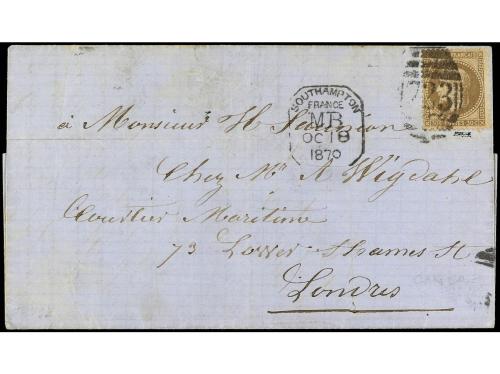 FRANÇAIS
723
SOUTHAMPTON
FRANCE
MB
OC 18
1870
à Monsieur H
Chez Mr A Wigdahl
Courtier Maritime
73 Lower Thames St
Londres